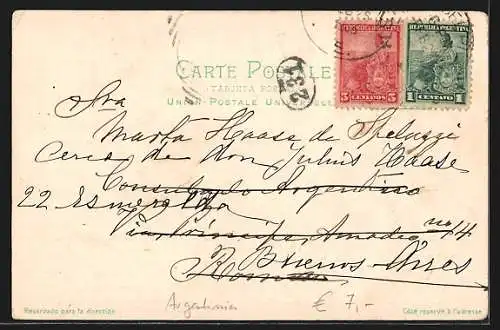 CARTE POSTALE
TARJETA POSTAL
UNION POSTALE UNIVERSELLE
REPUBLICA ARGENTINA
5 CENTAVOS 5
REPUBLICA ARGENTINA
1 CENTAVO 1
132
Sra
Marta Haase de Speluzzi
cerca de Don Julius Haase
Consulado Argentino
22 Esmeralda
Via Principe Amadeo no 14
Buenos-Aires
Roma
Reservado para la dirección
Côté réservé à l'adresse
Argentinien
€ 7,-